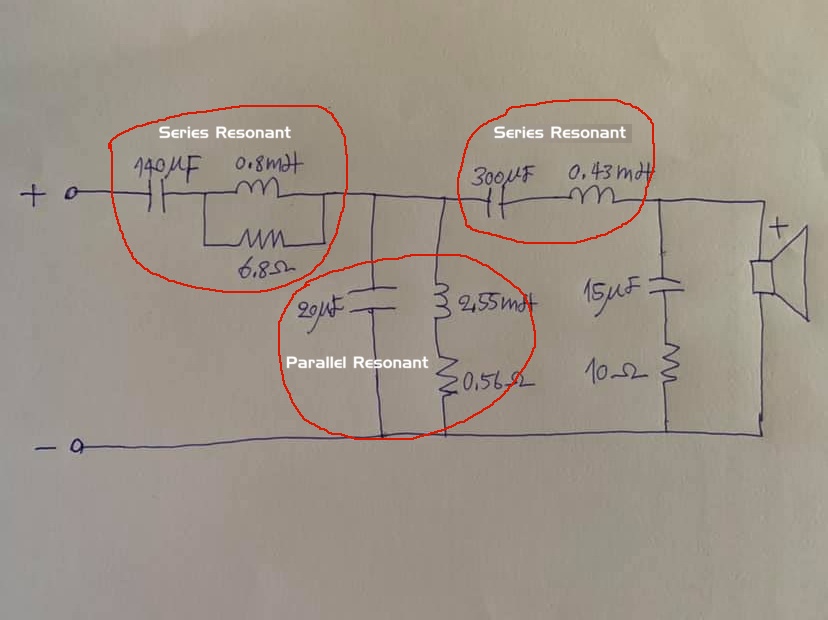 Series Resonant
Series Resonant
140μF
0.8mH
300μF
0.43mH
+
6.8Ω
+
20μF
2.55mH
15μF
Parallel Resonant
0.56Ω
10Ω
−